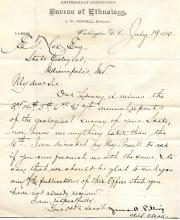 SMITHSONIAN INSTITUTION
Bureau of Ethnology,
J. W. POWELL, Director.
Washington, D. C., July 19
E. T. Cox Esq.
State Geologist,
Indianapolis, Ind.
My dear Sir:
Our Library is minus the
Annual Reports
of the geological survey of your State,
nor have we anything later than the
I am directed by Maj. Powell to ask
if you can furnish us with the same, & to
say that we should be glad to send you
any of the publications of this Office that you
have not already received.
I am respectfully